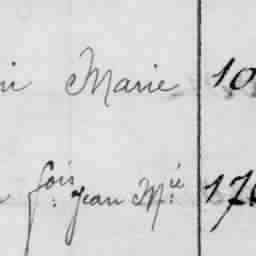 ni Marie 10
fois: Jean M.ie 176